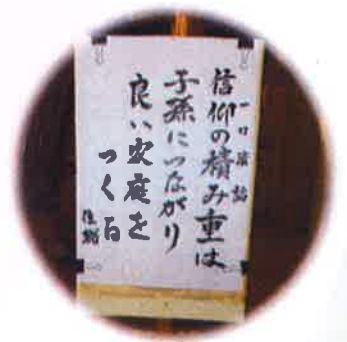 一口法話
信仰の積み重は
子孫につながり
良い家庭を
つくる
住職